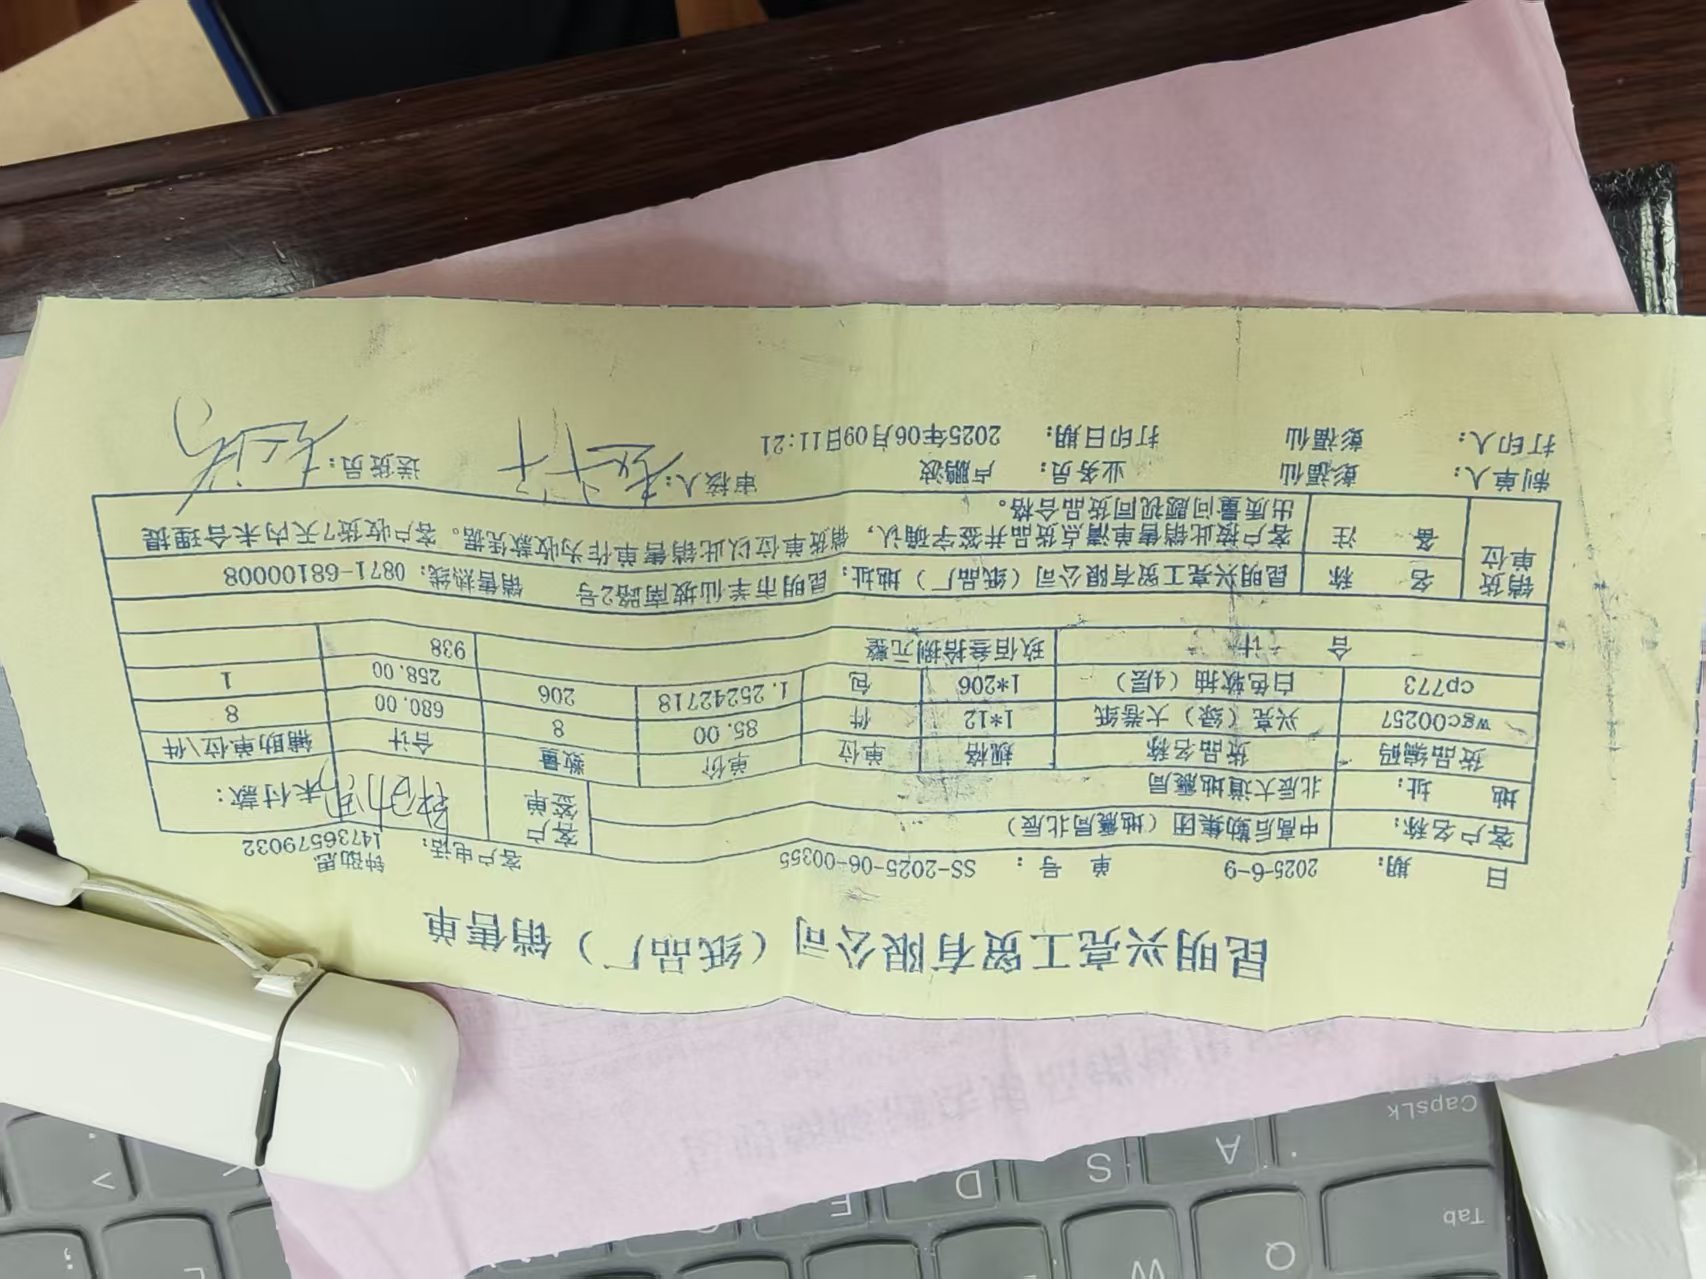 昆明兴亮工贸有限公司（纸品厂）销售单
日 期： 2025-6-9 单 号： SS-2025-06-00355 客户电话： 钟劭思 14736579032
客户名称： 中高后勤集团（地震局北辰） 客户签单 未付款：
地 址： 北辰大道地震局
货品编码 货品名称 规格 单位 单价 数量 合计 辅助单位\件
wgc00257 兴亮（绿）大卷纸 1*12 件 85.00 8 680.00 8
cp773 白色软抽（4层） 1*206 包 1.25242718 206 258.00 1
合 计 玖佰叁拾捌元整 938
销货单位 名 称 昆明兴亮工贸有限公司（纸品厂）地址： 昆明市羊仙坡南路2号 销售热线：0871-68100008
备 注 客户按此销售单清点货品并签字确认， 销货单位以此销售单作为收款凭据。客户收货7天内未合理提
出质量问题视同货品合格。
制单人： 彭福仙 业务员： 卢鹏波 审核人： 送货员：
打印人： 彭福仙 打印日期： 2025年06月09日11:21
CapsLk
A
S
D
Tab
Q
W
E